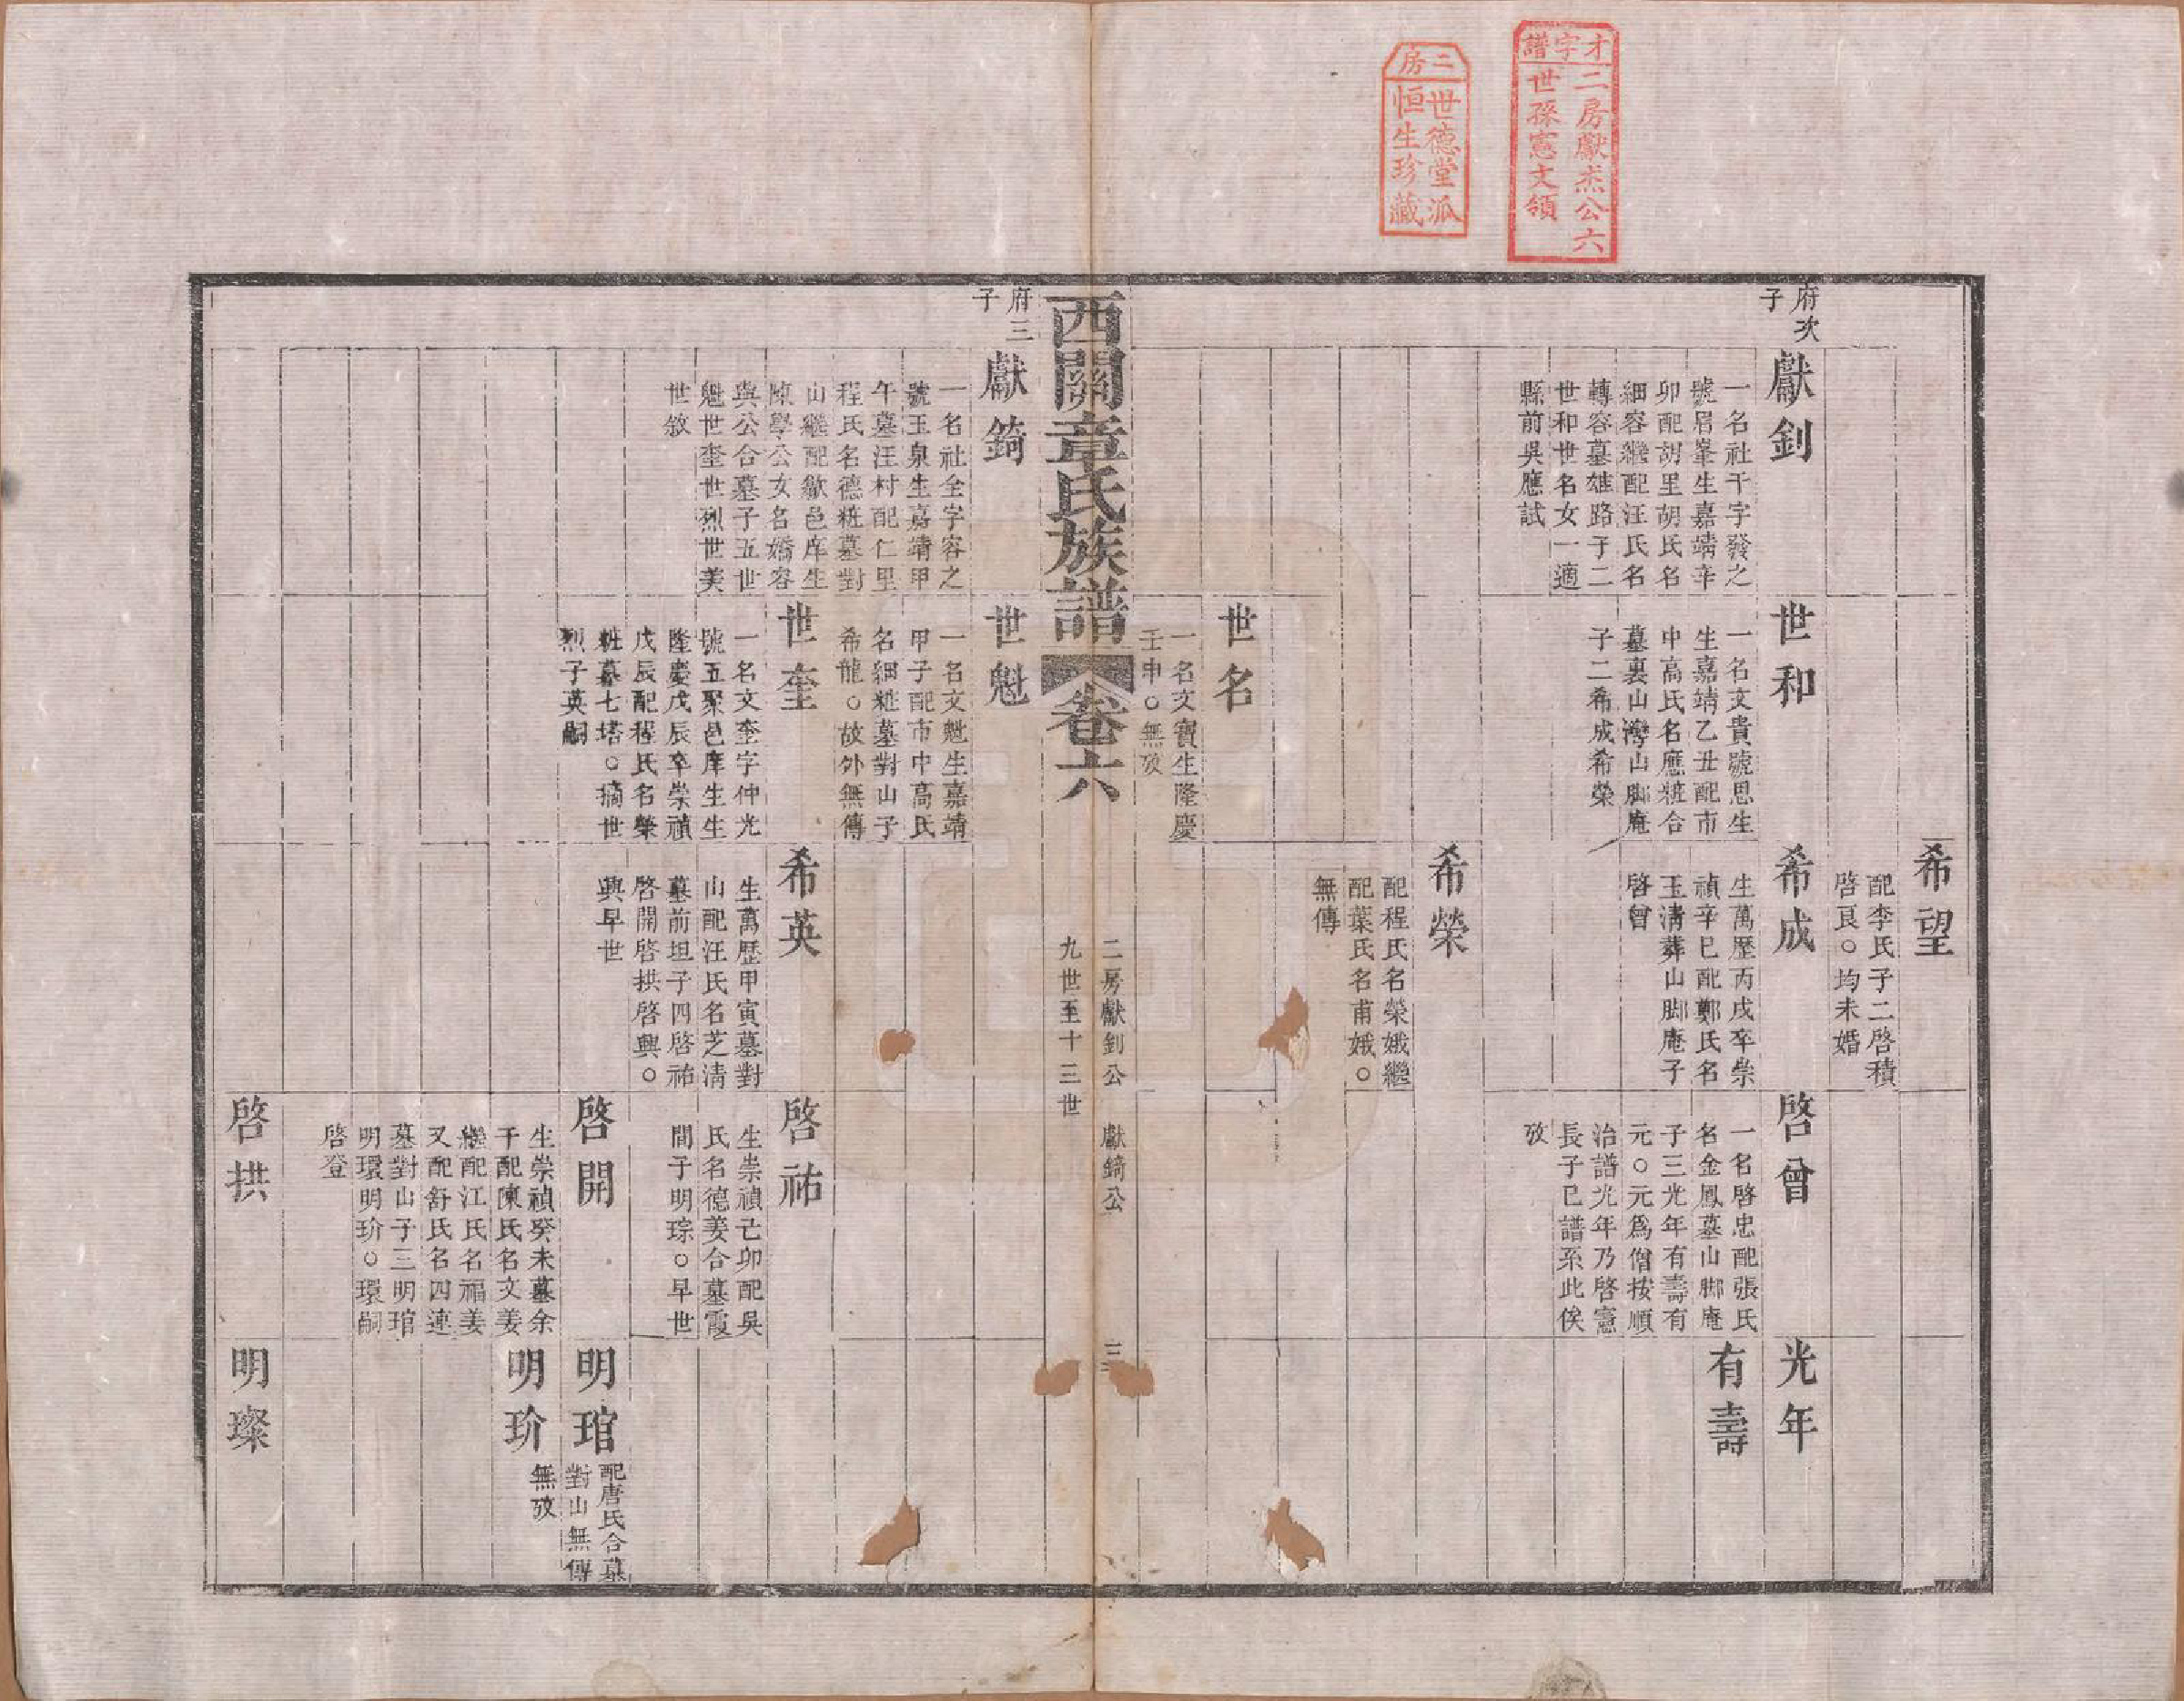 才字譜
二房獻杰公六
世孫憲文領
二房
世德堂派
恒生珍藏
希望
配李氏子二啓積
啓良○均未婚
府次
子
獻釗
一名社干字發之
號眉峯生嘉靖辛
卯配胡里胡氏名
細容繼配汪氏名
轉容墓雄路子二
世和世名女一適
縣前吳應試
世和
一名文貴號思生
生嘉靖乙丑配市
中高氏名應粧合
墓裏山灣山脚庵
子二希成希榮
希成
生萬歷丙戌卒崇
禎辛巳配鄭氏名
玉清葬山脚庵子
啓曾
啓曾
一名啓忠配張氏
名金鳳墓山脚庵
子三光年有壽有
元○元爲僧按順
治譜光年乃啓憲
長子已譜系此俟
攷
光年
有壽
希榮
配程氏名榮娥繼
配葉氏名甫娥○
無傳
世名
一名文寶生隆慶
壬申○無攷
西關章氏族譜
卷六
二房獻釗公 獻錡公
九世至十三世
三
府三
子
獻錡
一名社全字容之
號玉泉生嘉靖甲
午墓汪村配仁里
程氏名德粧墓對
山繼配歙邑庠生
陳學公女名嬌容
與公合墓子五世
魁世奎世烈世美
世敘
世魁
一名文魁生嘉靖
甲子配市中高氏
名細粧墓對山子
希龍○故外無傳
世奎
一名文奎字仲光
號五聚邑庠生生
隆慶戊辰卒崇禎
戊辰配程氏名榮
粧墓七塔○摘世
烈子英嗣
希英
生萬歷甲寅墓對
山配汪氏名芝清
墓前坦子四啓祐
啓開啓拱啓興○
興早世
啓祐
生崇禎己卯配吳
氏名德姜合墓霞
間子明琮○早世
啓開
生崇禎癸未墓余
干配陳氏名文姜
繼配江氏名福姜
又配舒氏名四連
墓對山子三明琯
明環明玠○環嗣
啓登
明琯
配唐氏合墓
對山無傳
明玠
無攷
啓拱
明璨